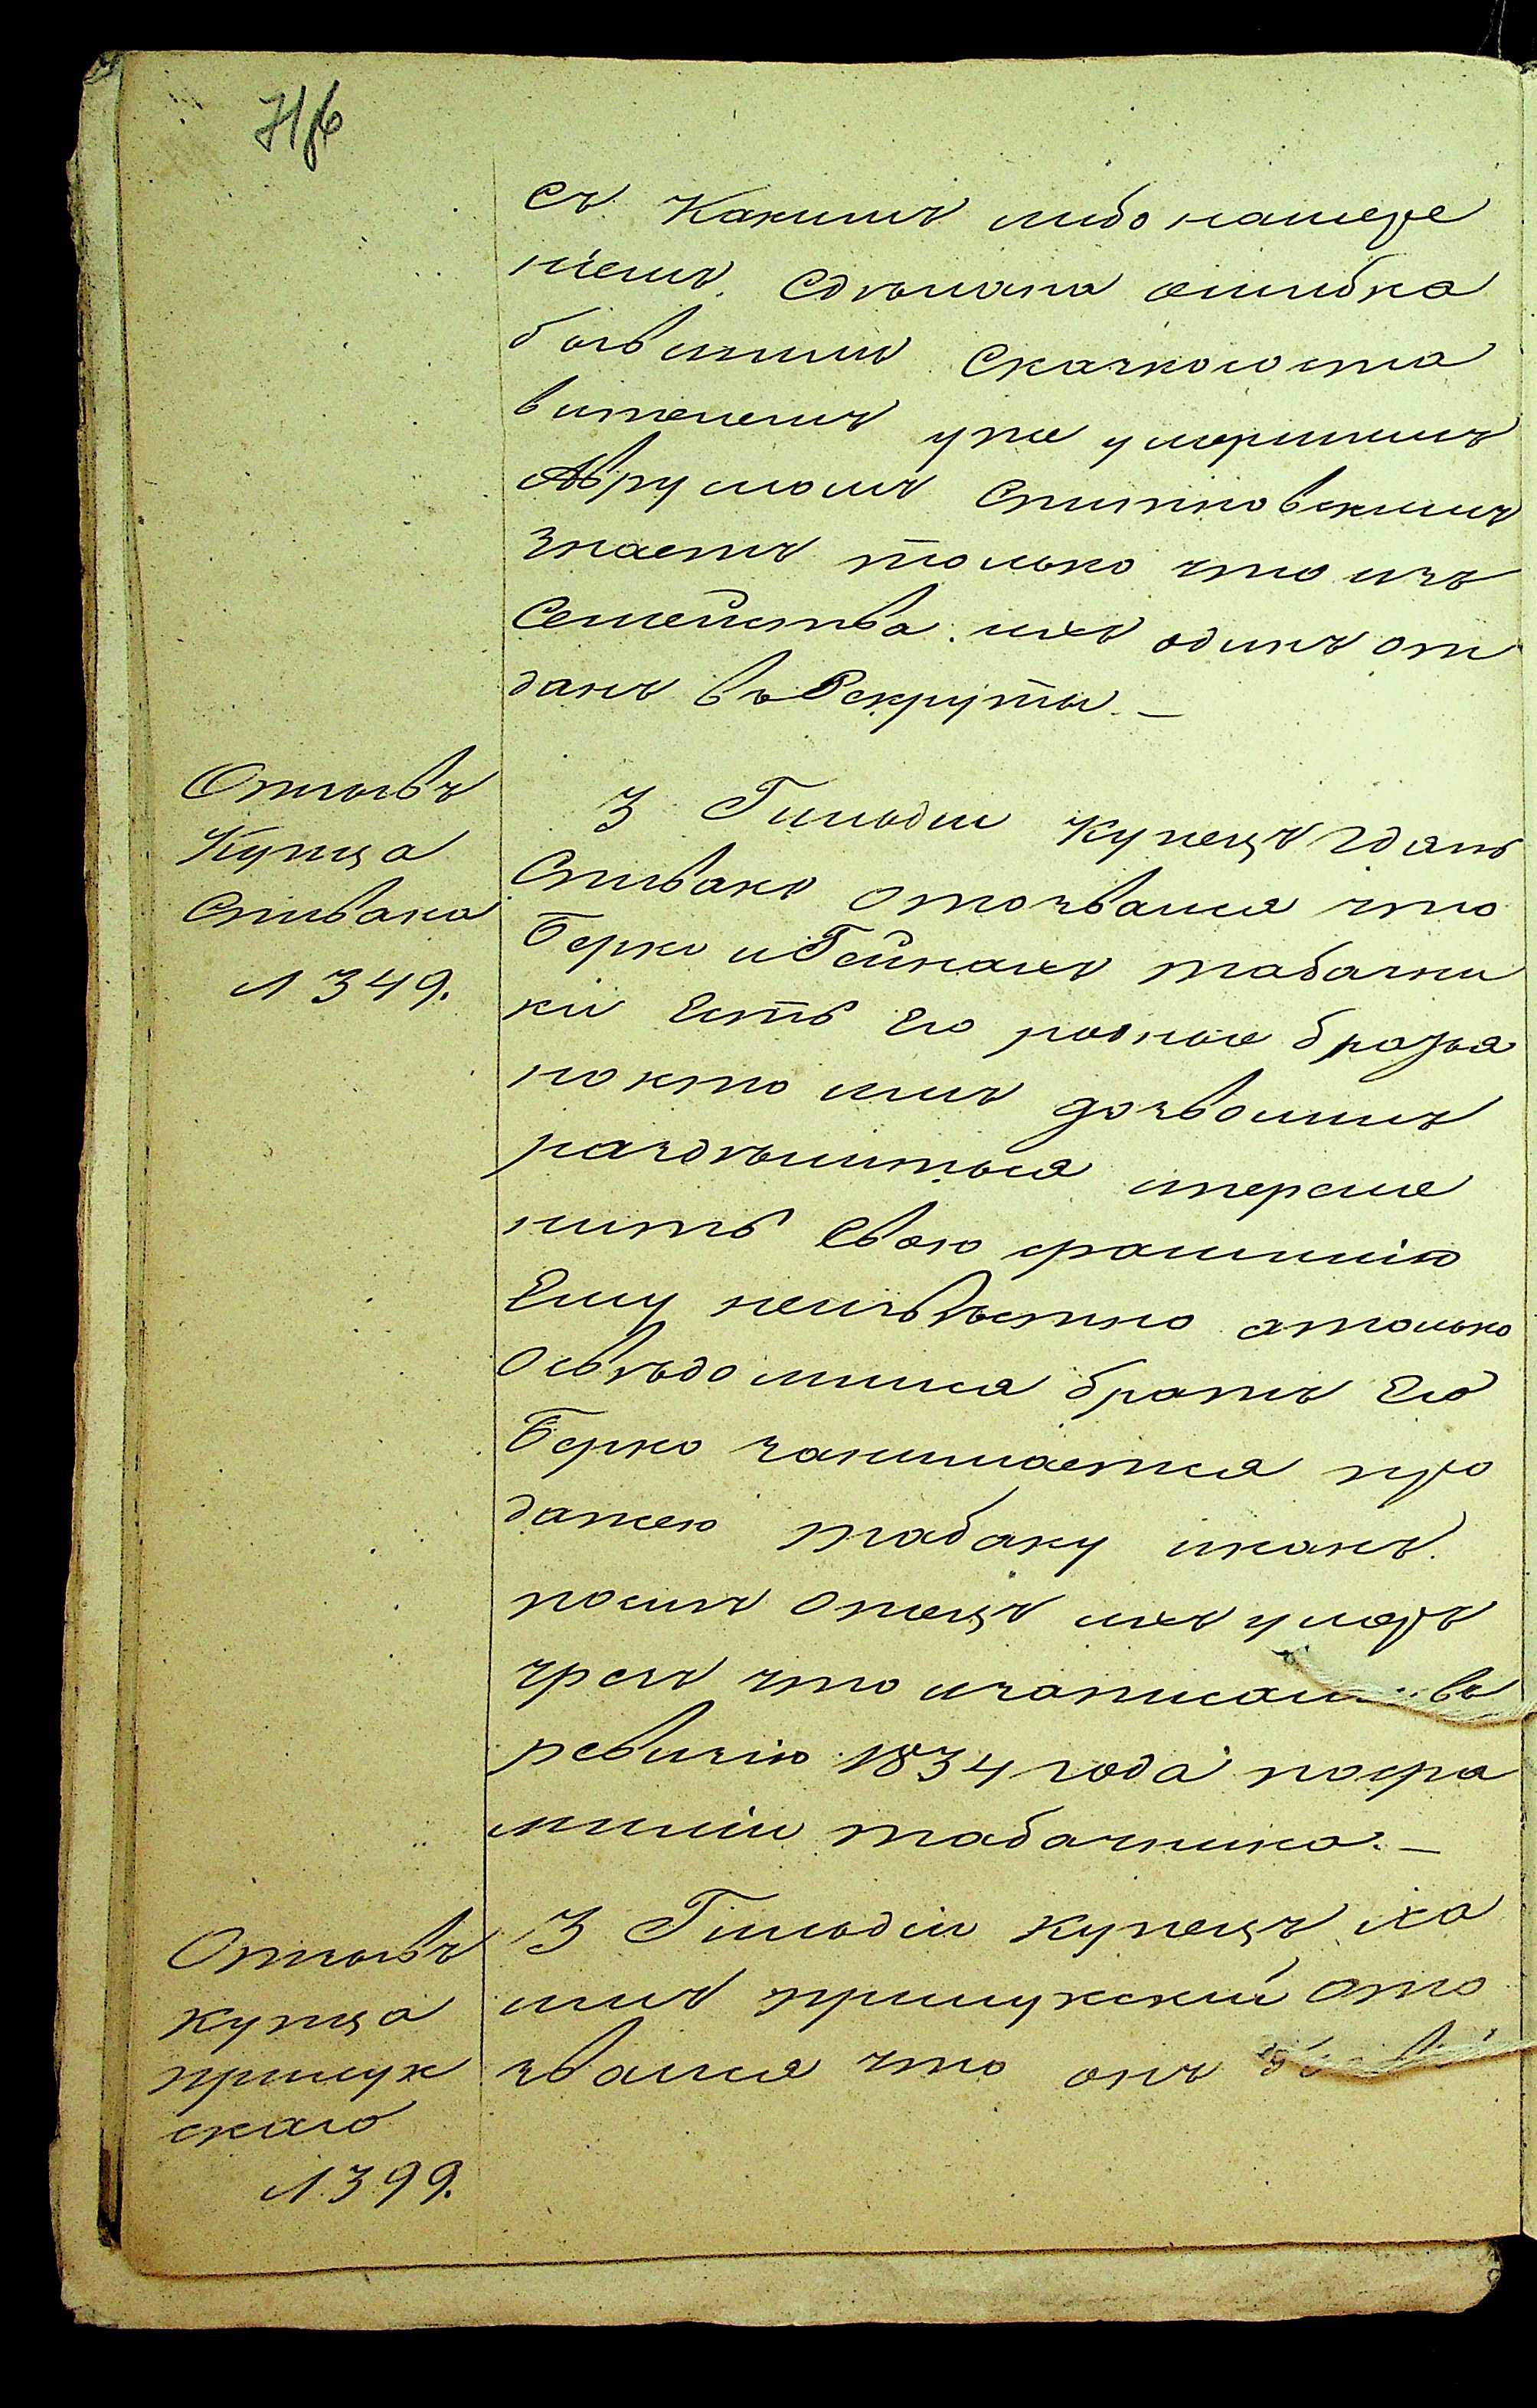 съ Какимъ либо намере
ніемъ Сделана ошибка
бывшимъ Сказкососта
вителемъ уже умершимъ
Аврумомъ Спитковскимъ
знаетъ только что изъ
Семейства ихъ одинъ от
данъ въ Рекруты. —
Отзывъ
Купца
Спивака
1349.
3 Гильдіи Купецъ Гдаль
Спивакъ отозвался что
Берко и Гейнахъ табачни
ки Есть Его родные братья
но кто имъ дозволилъ
раздѣлиться и переме
нить Свою фамилію
Ему неизвѣстно а только
освѣдомился братъ Его
Берко занимается про
дажею табаку и какъ
ихъ умеръ
чрезъ что и записанъ въ
ревизію 1834 года по фа
миліи табачника. —
Отзывъ
купца
примук
скаго
1399.
3 Гильдіи купецъ ха
имъ примукскій ото
звался что онъ